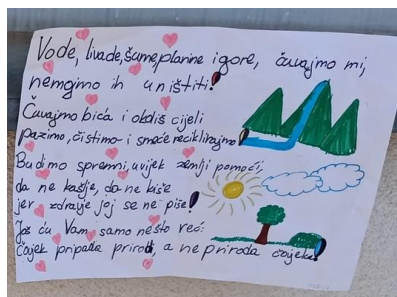 Vode, livade, šume, planine i gore, čuvajmo mi,
nemojmo ih uništiti!
Čuvajmo bića i okoliš cijeli
pazimo, čistimo i smeće reciklirajmo
Budimo spremni, uvijek zemlji pomoći,
da ne kašlje, da ne kiše
jer zdravlje joj se ne piše!
Još ću Vam samo nešto reć:
Čovjek pripada prirodi, a ne priroda čovjeku!